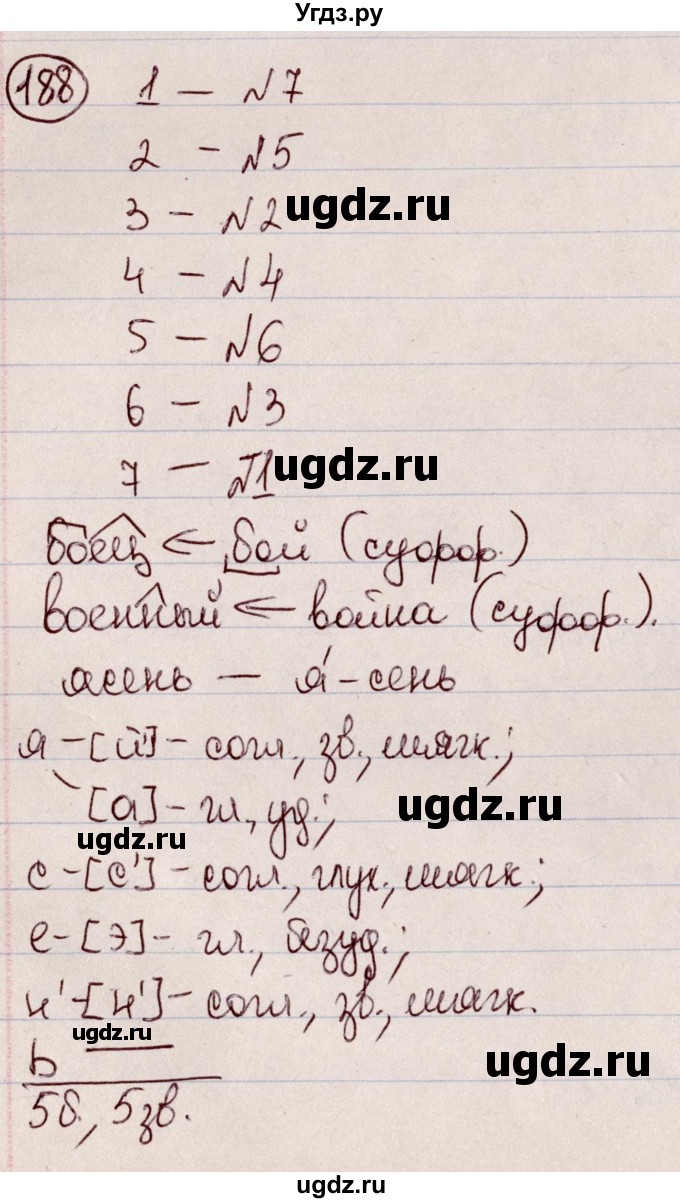 Угдз.ру
188 1 – №7
2 – №5
3 – №2 ugdz.ru
4 – №4
5 – №6
6 – №3
7 – №1 ugdz.ru
боец ← бой (суффор.)
военный ← война (суффор.).
ясень – я́-сень
я –[й']– согл., зв., мягк.;
[а]– гл., уд.; ugdz.ru
ugdz.ru
с –[с']– согл., глух., мягк.;
е –[э]– гл., безуд.;
н'–[н']– согл., зв., мягк.
ugdz.ru
ь —— ugdz.ru
5б., 5зв.
ugdz.ru